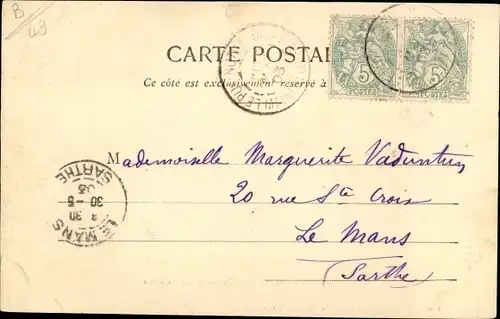 B
49
CARTE POSTAL
Ce côté est exclusivement reservé à
5 5
POSTES POSTES
Mademoiselle Marguerite
20 rue Ste Croix
Le Mans
(Sarthe)
LE MANS
30
30 - 5
03
SARTHE